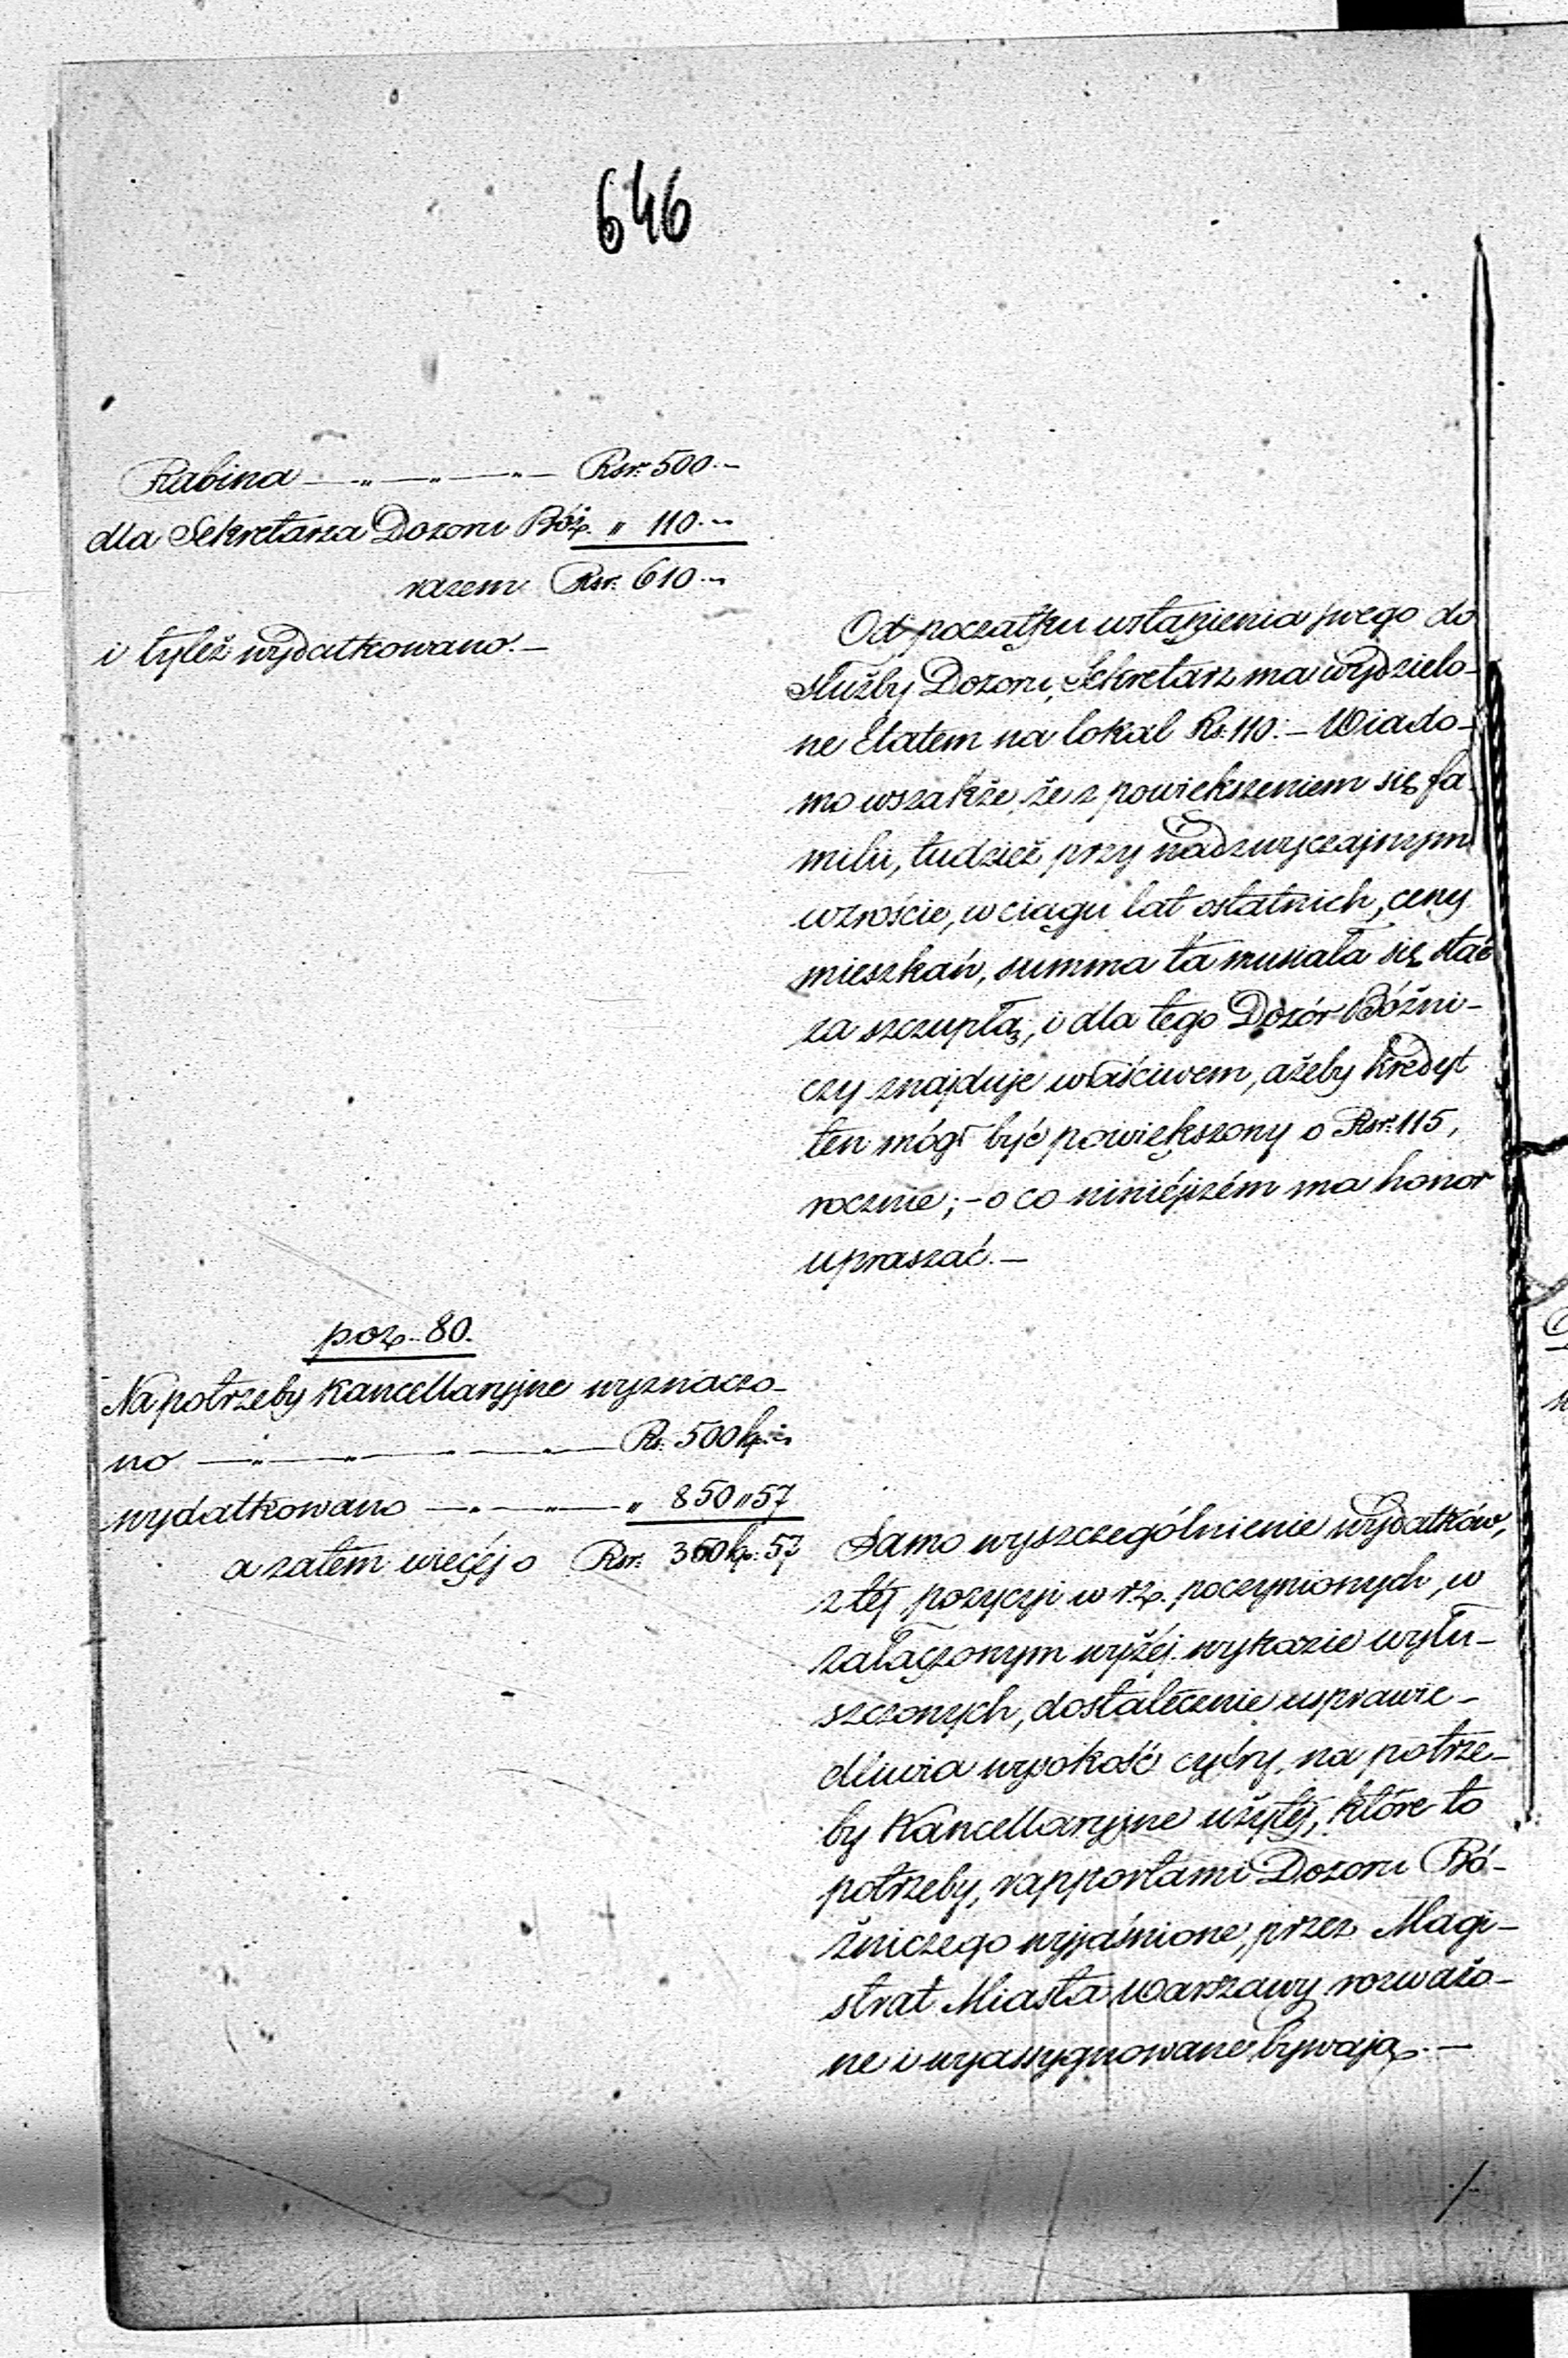 646
Rabina — „ — „ — „ — Rsr. 500.—
dla Sekretarza Dozoru Bóż. „ 110.—
razem Rsr. 610.—
i tyleż wydatkowano.—
Od początku wstąpienia swego do
służby Dozoru, Sekretarz ma wydzielo-
ne Etatem na lokal Rs. 110.— Wiado-
mo wszakże, że z powiększeniem się fa-
milii, tudzież przy nadzwyczajnym
wzroście, w ciągu lat ostatnich, ceny
mieszkań, summa ta musiała się stać
za szczupłą, i dla tego Dozór Bóżni-
czy znajduje właściwem, ażeby kredyt
ten mógł być powiększony o Rsr. 115,
rocznie; — o co niniéjszém ma honor
upraszać.—
poz. 80.
Na potrzeby kancellaryjne wyznaczo-
no — „ — „ — „ — Rs. 500 kp. „
wydatkowano — „ — „ — „ 850 „ 57
a zatem więcéj o Rsr. 350 kp. 57
Samo wyszczególnienie wydatków,
z téj pozycyi w r.z. poczynionych, w
załączonym wyżéj wykazie wyłu-
szczonych, dostatecznie usprawie-
dliwia wysokość cyfry, na potrze-
by Kancellaryjne użytéj, które to
potrzeby, rapportami Dozoru Bó-
żniczego wyjaśnione, przez Magi-
strat Miasta Warszawy rozważo-
ne i wyassygnowane bywają.—
./.